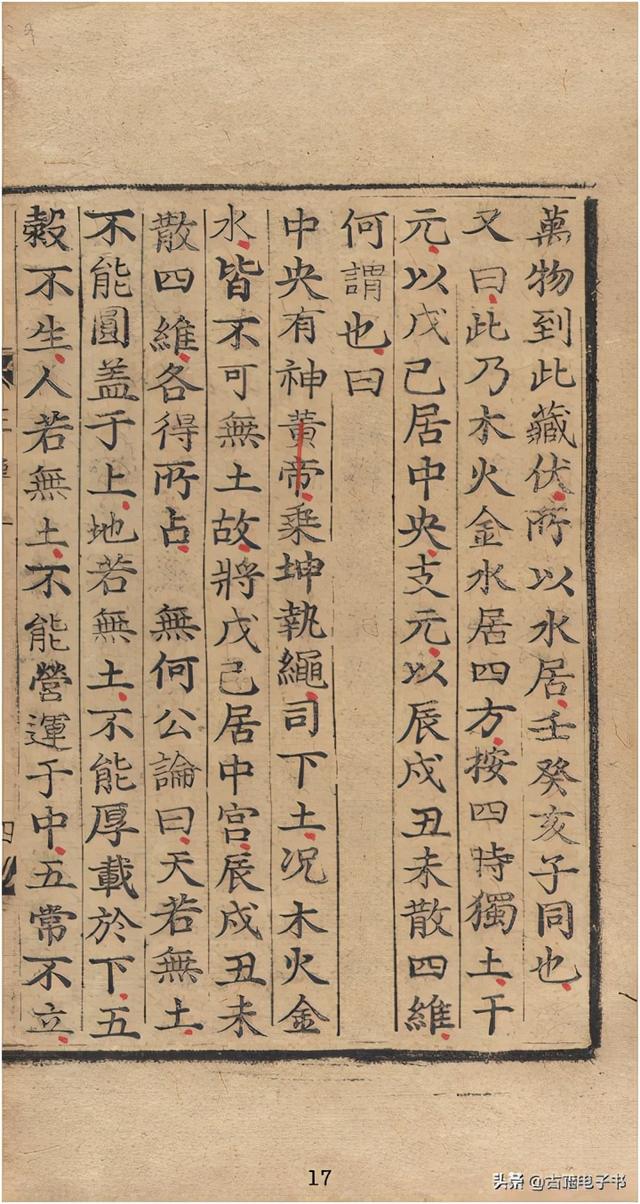 萬物到此藏伏所以水居壬癸亥子同也
又曰此乃木火金水居四方按四時獨土干
元以戊己居中央支元以辰戌丑未散四維
何謂也曰
中央有神黄帝乗坤執繩司下土况木火金
水皆不可無土故將戊己居中宫辰戌丑未
散四維各得所占 無何公論曰天若無土
不能圓盖于上地若無土不能厚載於下五
榖不生人若無土不能營運于中五常不立
四
17
头条 @古籍电子书